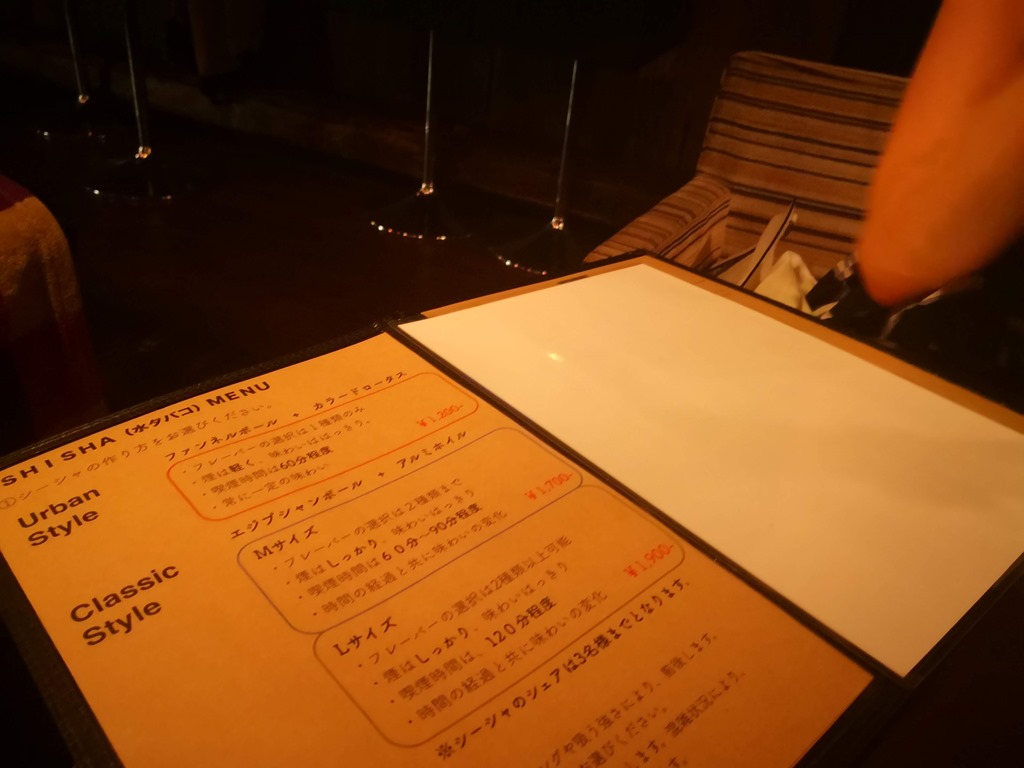 SHISHA (水タバコ) MENU
①シーシャの作り方をお選びください。
Urban
Style
ファンネルボール + カラードロータス
・フレーバーの選択は1種類のみ
・煙は軽く、味わいははっきり。
・喫煙時間は60分程度
・常に一定の味わい
¥1,200-
Classic
Style
エジプシャンボール + アルミホイル
Mサイズ
・フレーバーの選択は2種類まで
・煙はしっかり、味わいはっきり
・喫煙時間は60分～90分程度
・時間の経過と共に味わいの変化
¥1,700-
Lサイズ
・フレーバーの選択は2種類以上可能
・煙はしっかり、味わいはっきり
・喫煙時間は、120分程度
・時間の経過と共に味わいの変化
¥1,900-
※シーシャのシェアは3名様までとなります。
グや吸う強さにより、前後します。
お選びください。
ます。混雑状況により、